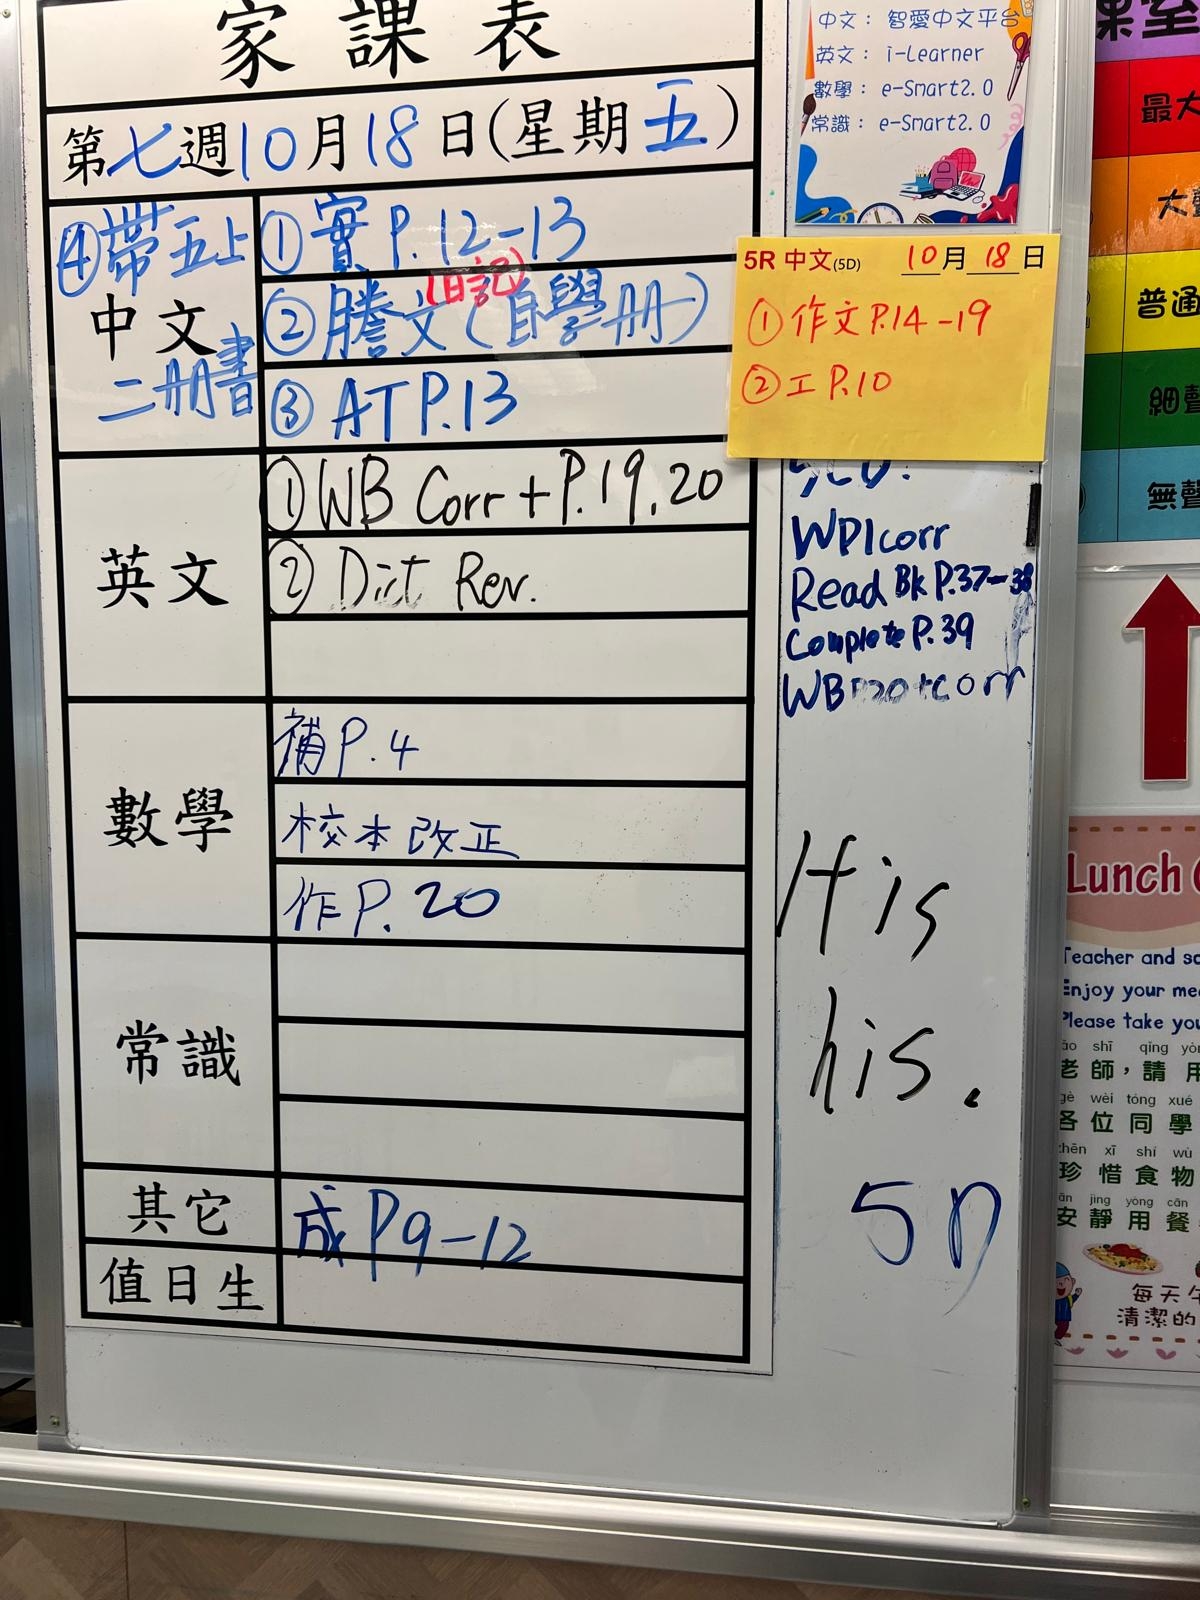 家課表
第七週10月18日(星期五)
④帶五上
中文
二冊書
①實P.12-13
(日記)
②謄文(自學冊)
③AT P.13
英文
①WB Corr + P.19,20
②Dict Rev.
數學
補P.4
校本改正
作P.20
常識
其它
成P9-12
值日生
中文:智愛中文平台
英文:i-Learner
數學:e-Smart2.0
常識:e-Smart2.0
5R中文(5D) 10月18日
①作文P.14-19
②工P.10
WP1corr
Read Bk P.37-38
Complete P.39
WB corr
His
his.
5D
課室
最大
大聲
普通
細聲
無聲
Lunch
Teacher and
Enjoy your
Please take
shī qǐng
老師,請用
gè wèi tóng xué
各位同學
zhēn xī shí wù
珍惜食物
ān jìng yòng cān
安靜用餐
每天
清潔的